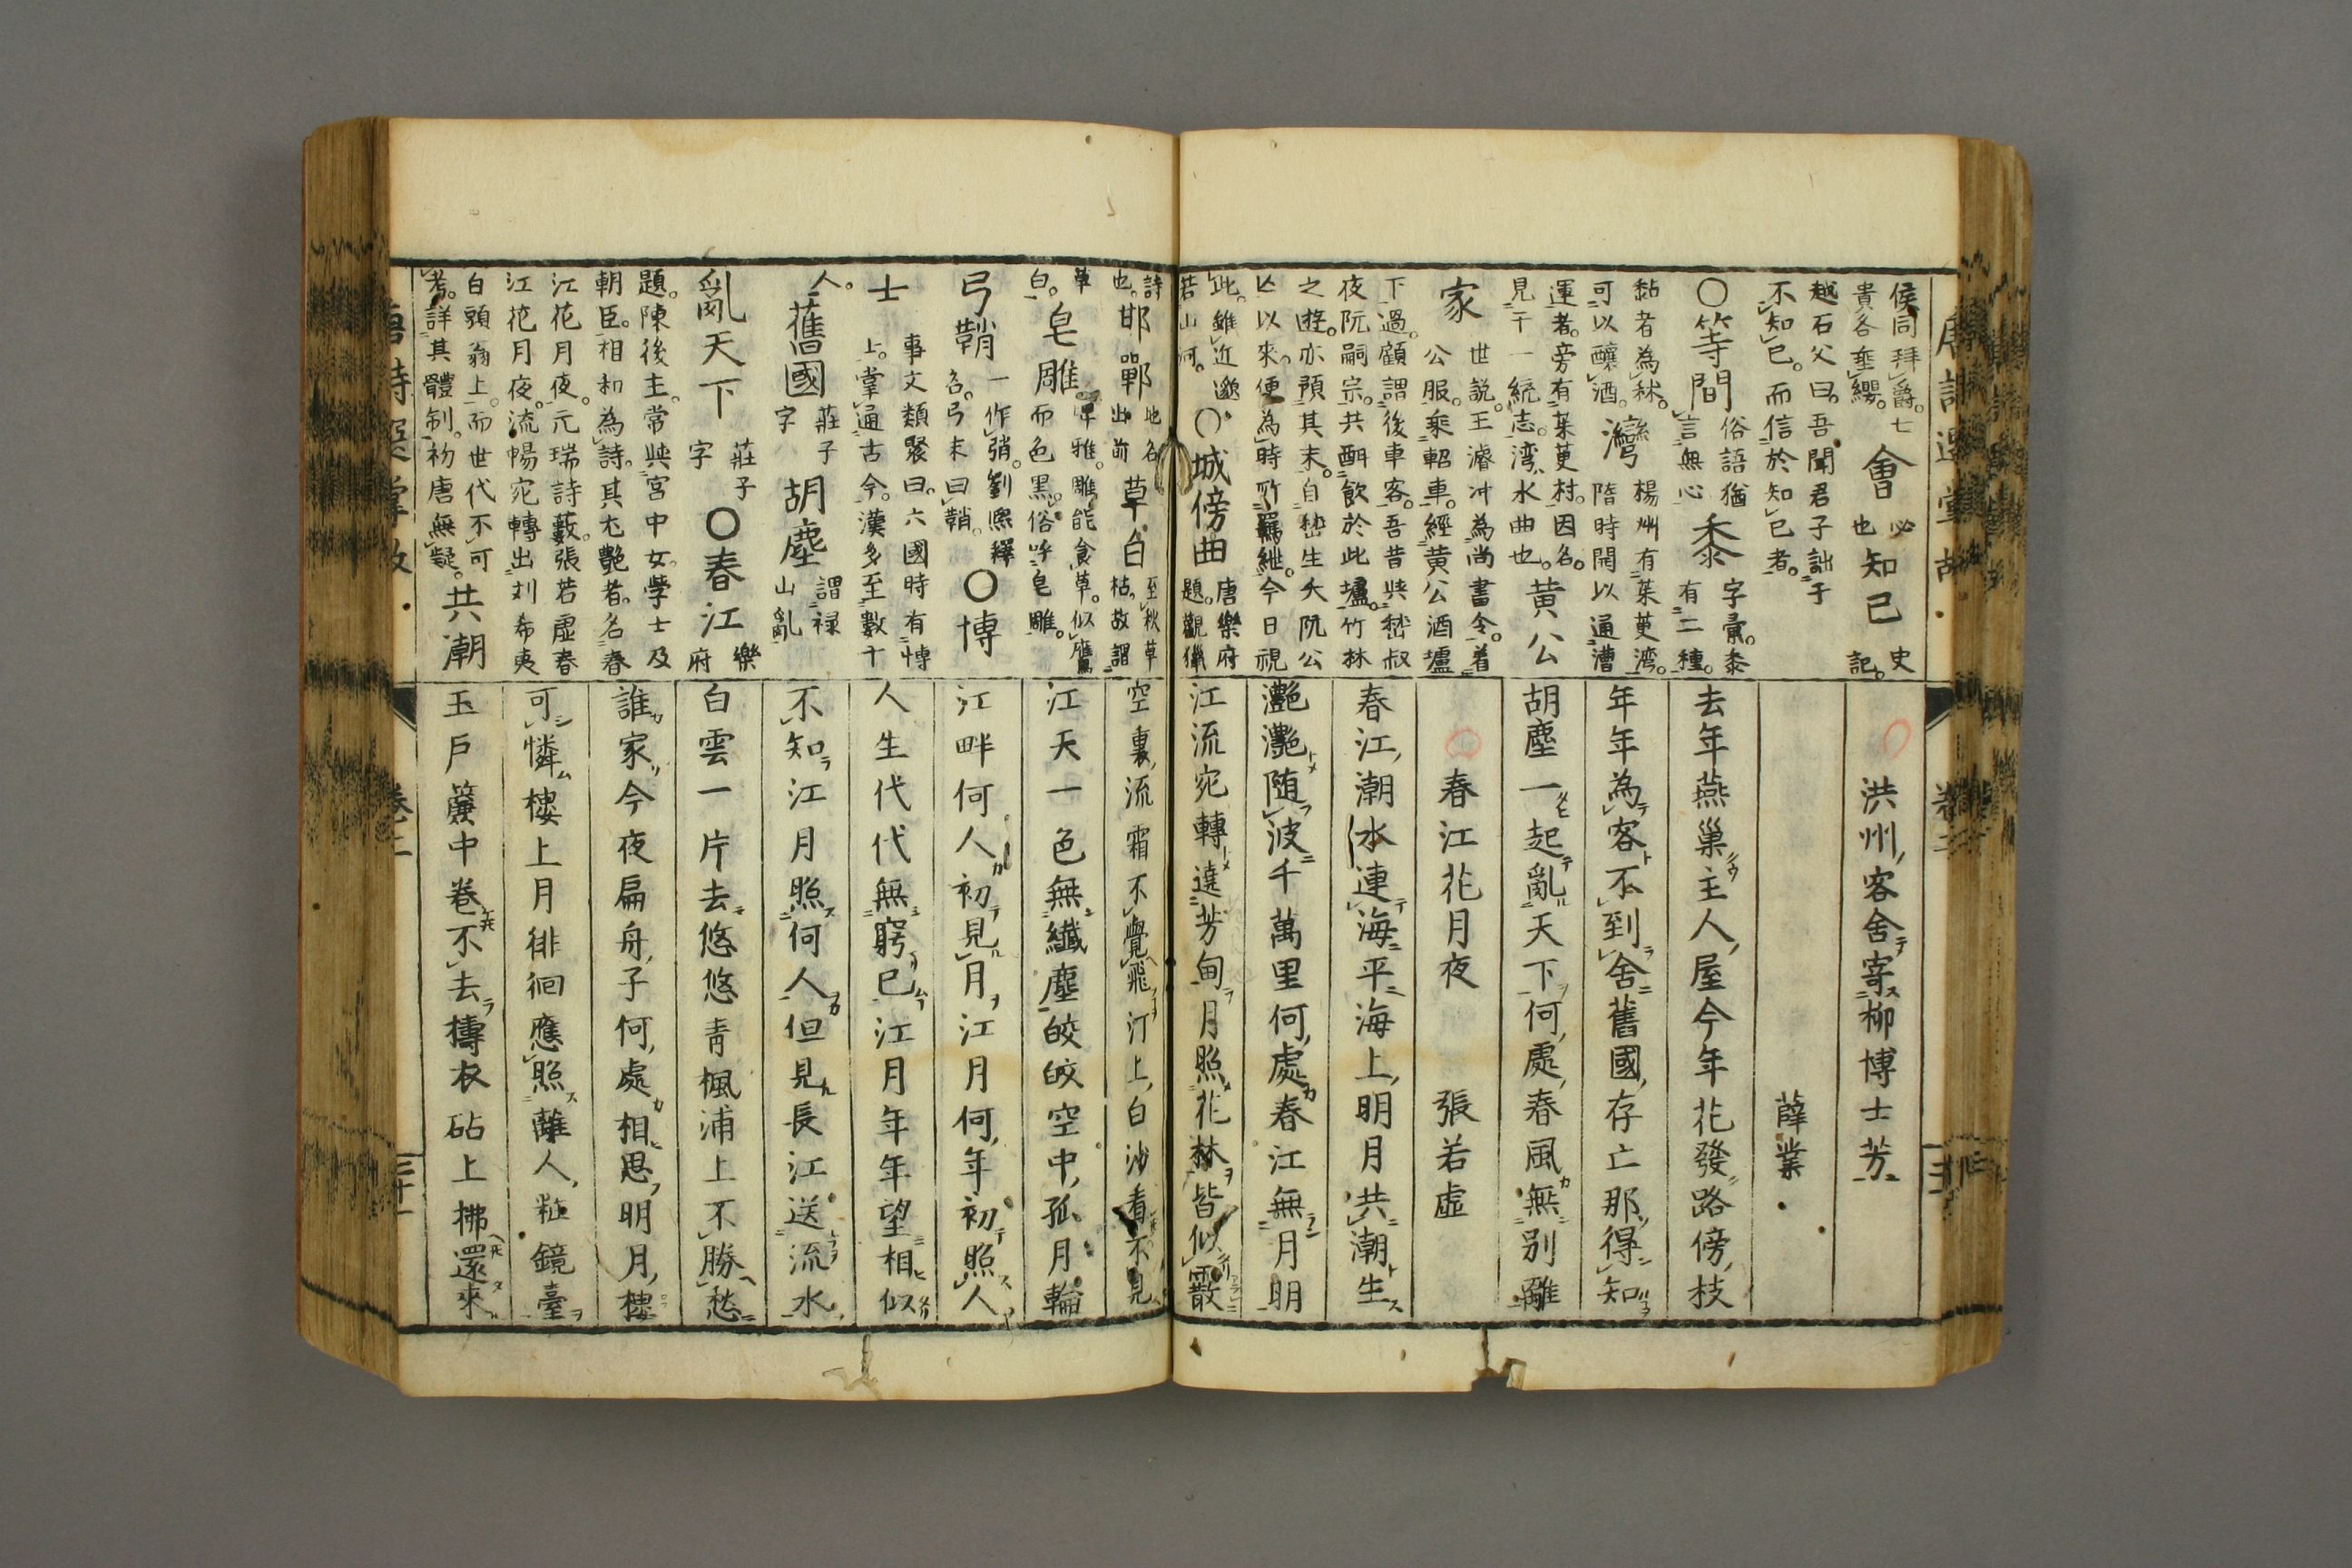 侯同拜爵。七
貴各埀纓。
會
必
也
知己
史
記。
越石父曰。吾聞君子詘于
不知己。而信於知己者。
○等間
俗語猶
言無心
黍
字彙。黍
有二種。
黏者為秫。
可以釀酒。
灣
楊州有茱萸湾。
隋時開以通漕
運者。旁有茱萸村。因名。
見干一統志。湾水曲也。
黄公
家
世説。王濬冲為尚書令。着
公服。乘軺車。經黄公酒壚
下過。顧謂後車客。吾昔與嵇叔
夜阮嗣宗。共酣飲於此壚。竹林
之遊。亦預其末。自嵇生夭阮公
亡以來。便為時所羈紲。今日視
此。雖近邈
若山河。
○城傍曲
唐樂府
題。觀獵
洪州客舍寄柳博士芳
薛業
去年燕巢主人屋今年花發路傍枝
年年為客不到舍舊國存亡那得知
胡塵一起亂天下何處春風無別離
春江花月夜 張若虛
春江潮水連海平海上明月共潮生
灔灔随波千萬里何處春江無月明
江流宛轉遶芳甸月照花林皆似霰
詩
也。
邯鄲
地名
出前
草白
至秋草
枯。故謂
草
白。
皂雕
雅。雕能食草。似鷹
而色黒。俗呼皂雕。
弓鞘
一作弰。劉熈釋
名。弓末曰鞘。
○博
士
事文類聚曰。六國時有博
上。掌通古今。漢多至數十
人。
舊國
莊子
字
胡塵
謂禄
山亂
亂天下
莊子
字
○春江
樂
府
題。陳後主。常與宮中女學士及
朝臣。相和為詩。其尤艷者。名春
江花月夜。元瑞詩藪。張若虛春
江花月夜。流暢宛轉出刘希夷
白頭翁上。而世代不可
考。詳其體制。初唐無疑。
共潮
空裏流霜不覺飛汀上白沙看不見
江天一色無纖塵皎皎空中孤月輪
江畔何人初見月江月何年初照人
人生代代無窮已江月年年望相似
不知江月照何人但見長江送流水
白雲一片去悠悠青楓浦上不勝愁
誰家今夜扁舟子何處相思明月樓
可憐樓上月徘徊應照離人粧鏡臺
玉戸簾中卷不去擣衣砧上拂還來